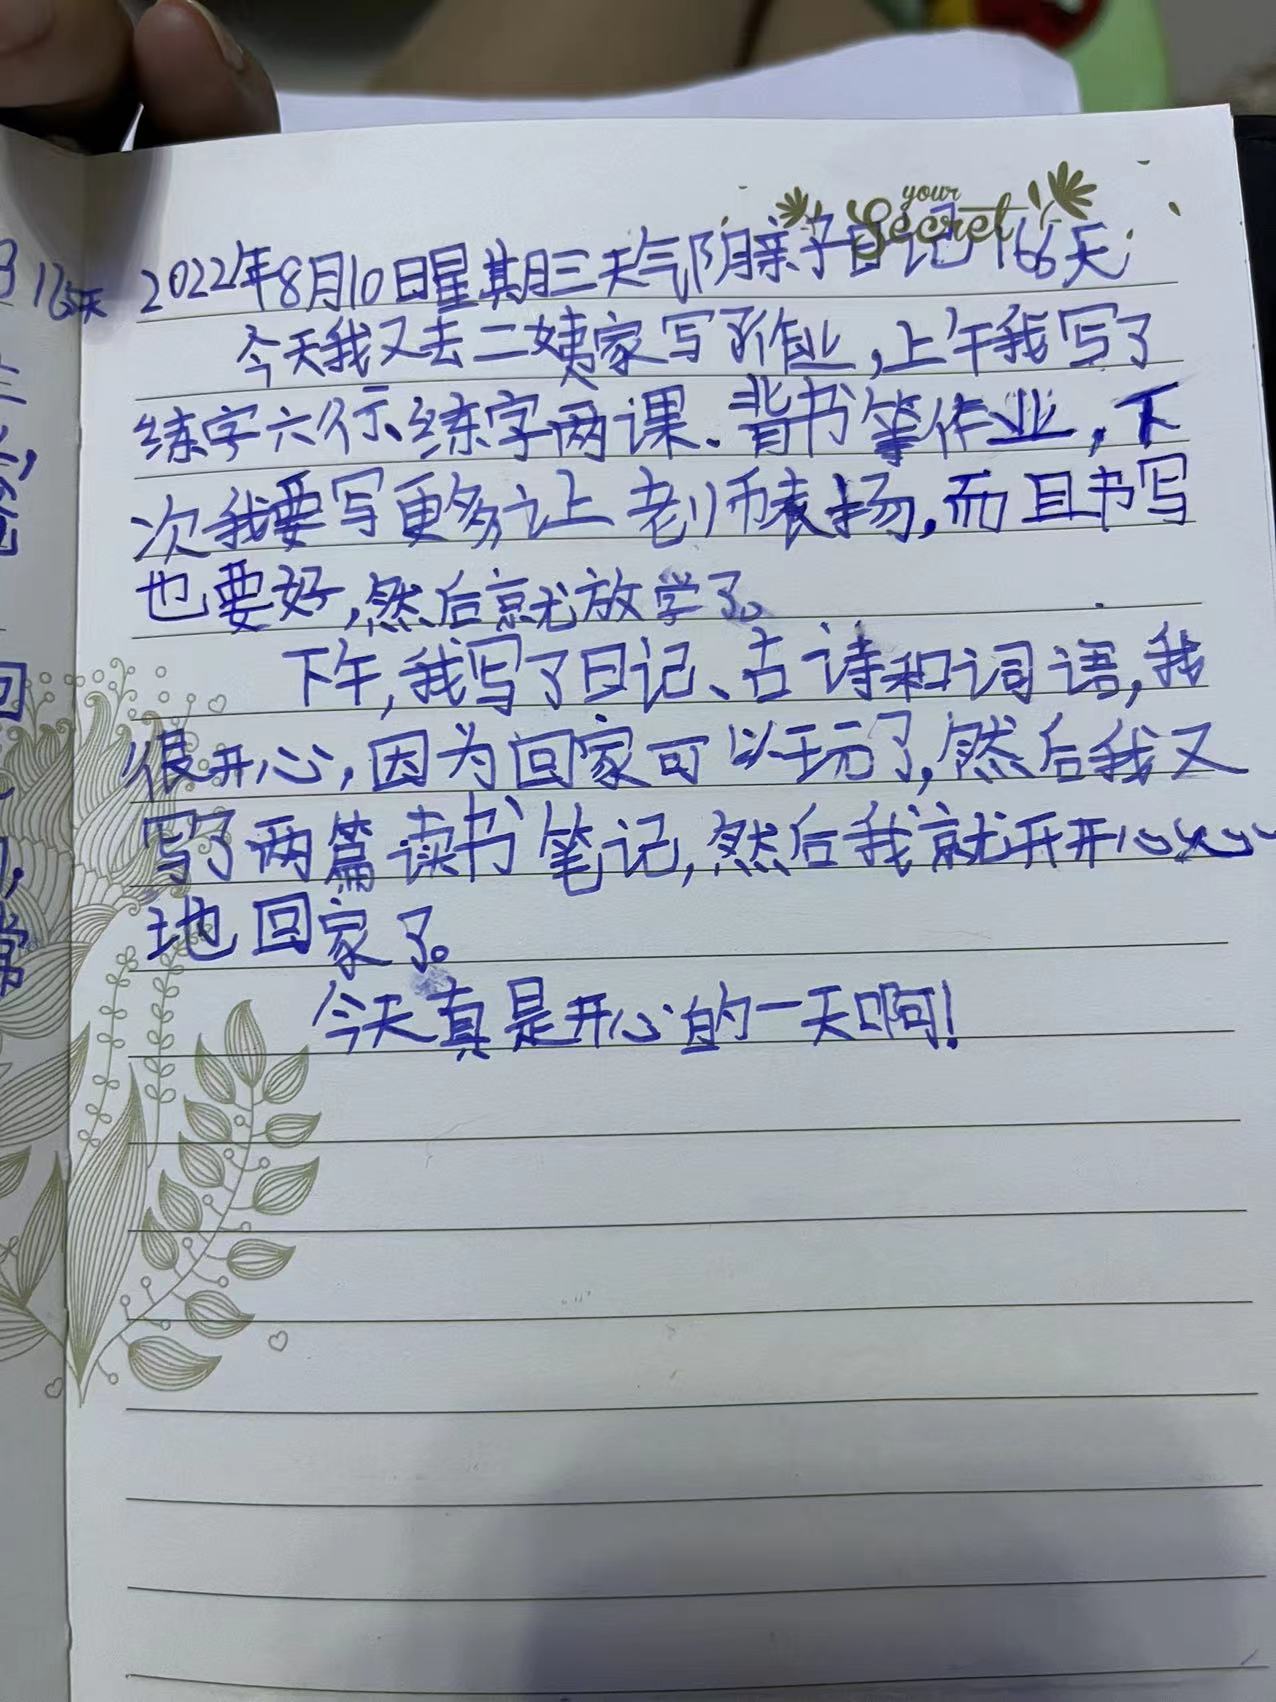 your
Secret
2022年8月10日星期三天气阴亲子日记166天
今天我又去二姨家写了作业,上午我写了
练字六行、练字两课、背书等作业,下
次我要写更多让老师表扬,而且书写
也要好,然后就放学了。
下午,我写了日记、古诗和词语,我
很开心,因为回家可以玩了,然后我又
写了两篇读书笔记,然后我就开开心心
地回家了。
今天真是开心的一天啊!